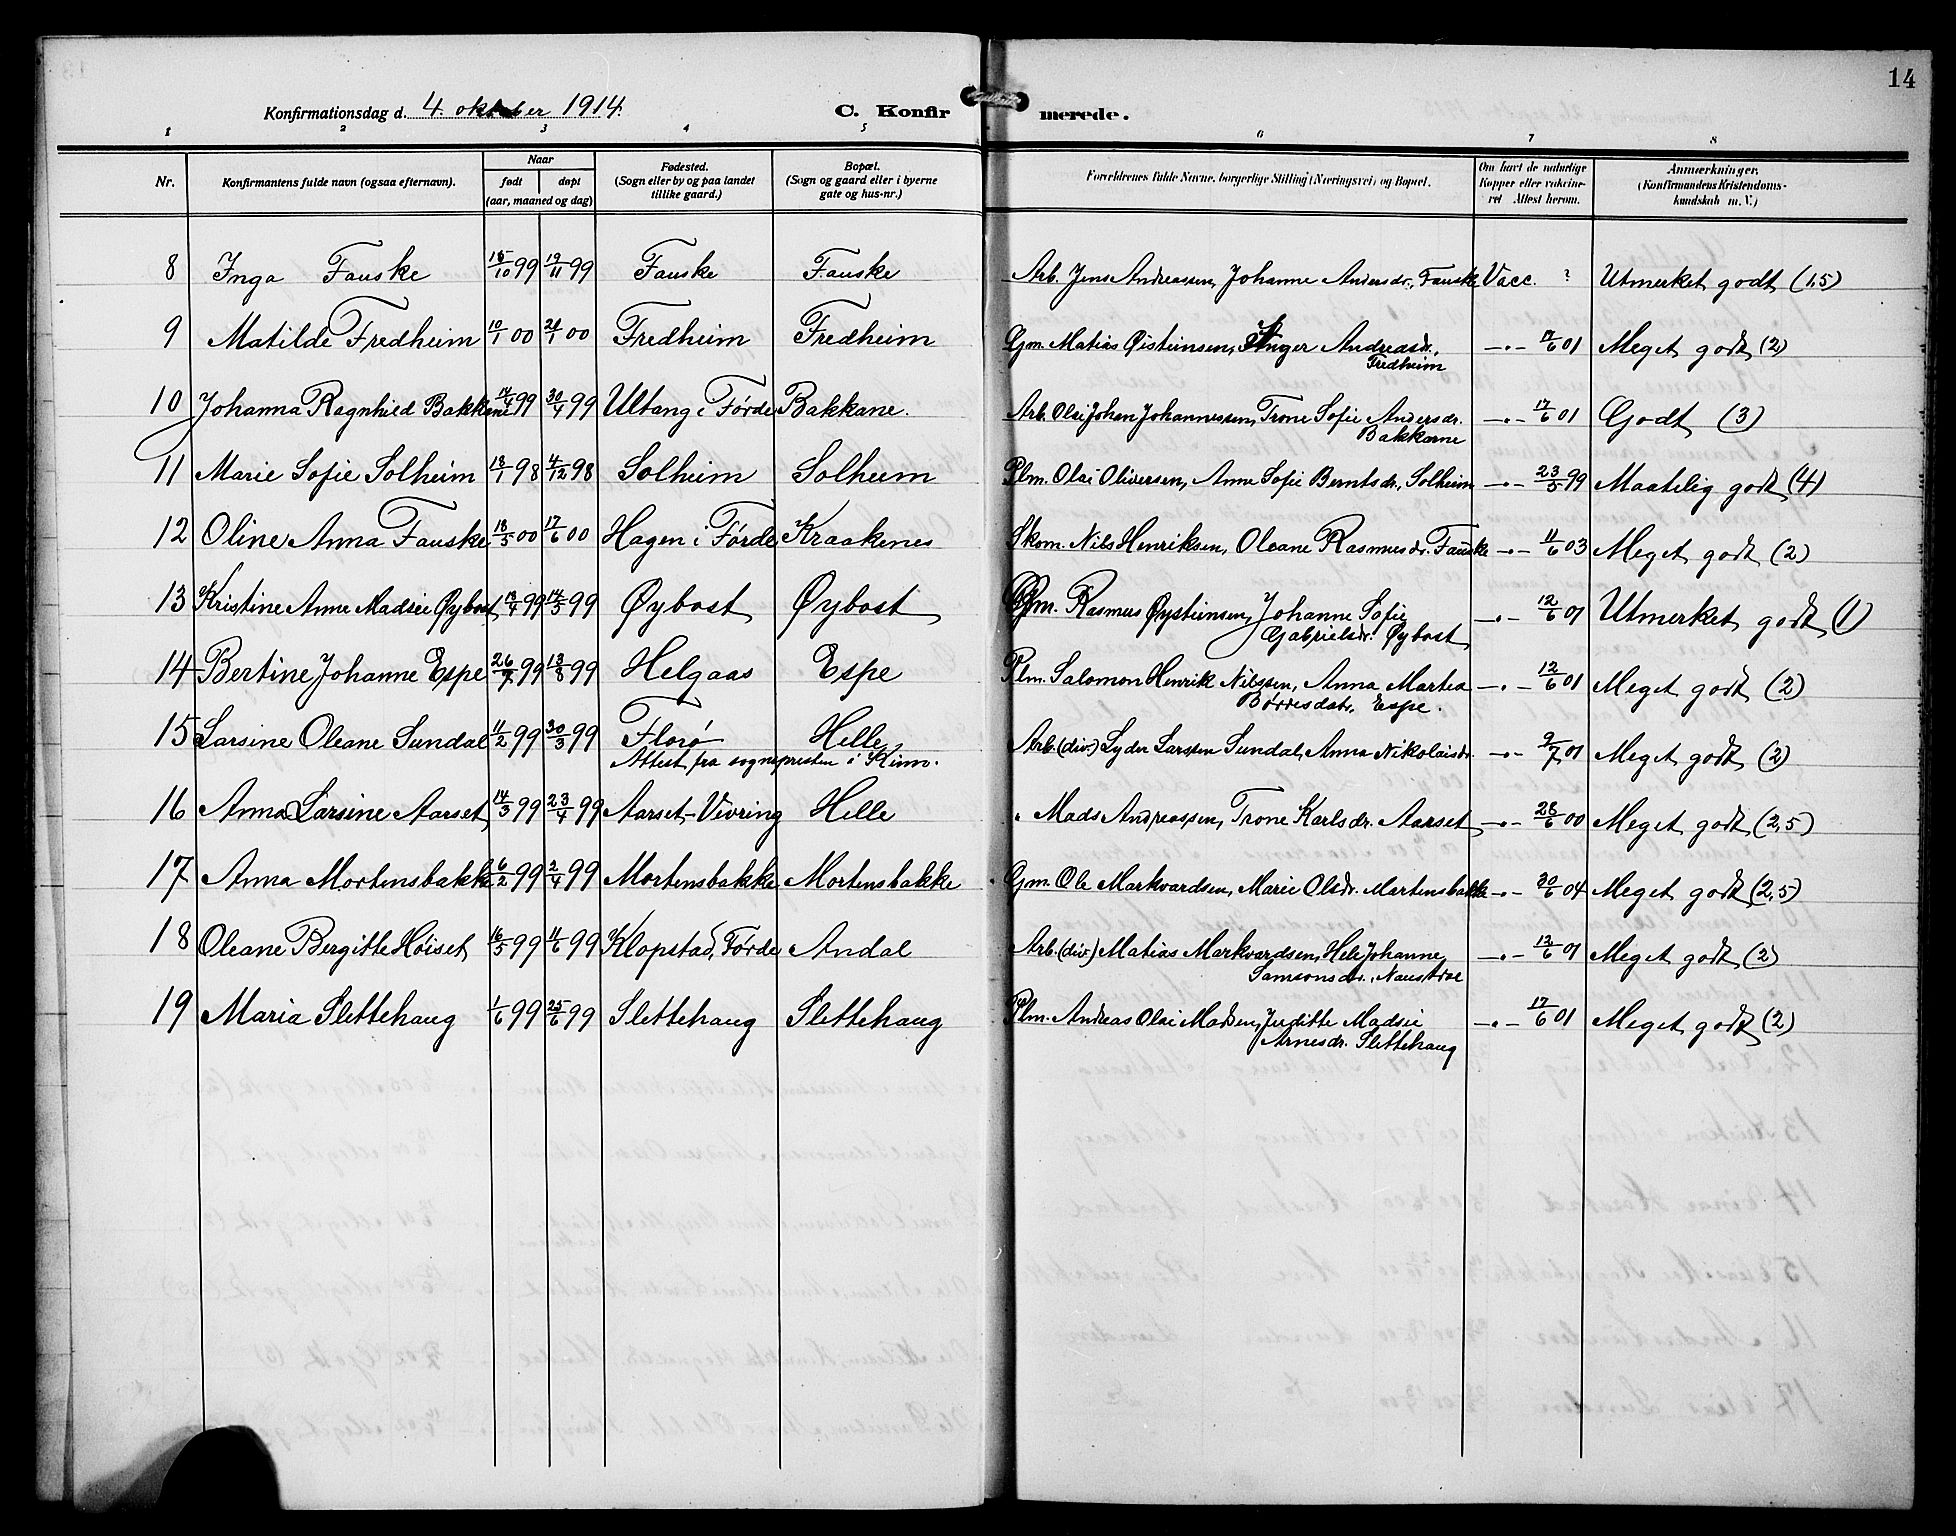 14
Konfirmationsdag d. 4. oktober 1914.
C. Konfirmerede.
1 2 3 4 5 6 7 8
Nr. Konfirmantens fulde navn (ogsaa efternavn). Naar født døpt (aar, maaned og dag) Fødested. (Sogn eller by og paa landet tillike gaard.) Bopæl. (Sogn og gaard eller i byerne gate og hus-nr.) Forældrenes fulde Navne, borgerlige Stilling (Næringsvei) og Bopæl. Om havt de naturlige Kopper eller vakcineret Attest herom. Anmærkninger. (Konfirmandens Kristendomskundskab m. V.)
8 Inga Fauske 15/10 99 19/11 99 Fauske Fauske Arb. Jens Andreassen, Johanne Andersdr., Fauske Vacc. ? Utmerket godt (1,5)
9 Matilde Fredheim 10/1 00 21/1 00 Fredheim Fredheim Gm. Matias Øisteinsen, Inger Andreasdr., Fredheim -"- 17/6 01 Meget godt (2)
10 Johanna Ragnhild Bakkene 14/4 99 30/4 99 Ultang i Førde Bakkane. Arb. Olai Johan Johannessen, Trone Sofie Andersdr. Bakkarne -"- 17/6 01 Godt (3)
11 Marie Sofie Solheim 18/1 98 4/12 98 Solheim Solheim Plm. Olai Oliversen, Anne Sofie Berntsdr., Solheim -"- 23/5 99 Maatelig godt (4)
12 Oline Anna Fauske 18/5 00 17/6 00 Hagen i Førde Kraakenes Skom. Nils Henriksen, Oleane Rasmusdr. Fauske -"- 11/6 03 Meget godt (2)
13 Kristine Anne Madsie Øybost 18/4 99 14/5 99 Øybost Øybost Gm. Rasmus Øysteinsen, Johanne Sofie Gabrielsdr. Øybost -"- 12/6 01 Utmerket godt (1)
14 Bertine Johanne Espe 26/7 99 13/8 99 Helgaas Espe Plm. Salomon Henrik Nilssen, Anna Martea Børresdatr. Espe. -"- 12/6 01 Meget godt (2)
15 Larsine Oleane Sundal 11/2 99 30/3 99 Florø Helle Arb. (div.) Lyder Larssen Sundal, Anna Nikolaisdr. -"- 9/7 01 Meget godt (2)
Attest fra sognepresten i Kinn.
16 Anna Larsine Aarset 14/3 99 23/4 99 Aarset, Vevring Helle " Mads Andreassen, Trone Karlsdr. Aarset -"- 28/6 00 Meget godt (2,5)
17 Anna Mortensbakke 6/2 99 2/4 99 Mortensbakke Mortensbakke Gm. Ole Markvardsen, Marie Olsdr. Mortensbakke -"- 30/6 04 Meget godt (2,5)
18 Oleane Bergitte Høiset 16/5 99 11/6 99 Klopstad, Førde Andal Arb. (div.) Matias Markvardsen, Hele Johanne Samsonsdr., Naustdal -"- 12/6 01 Meget godt (2)
19 Maria Slettehaug 1/6 99 25/6 99 Slettehaug Slettehaug Plm. Andreas Olai Madsen, Juditte Madsie Arnesdr. Slettehaug -"- 17/6 01 Meget godt (2)